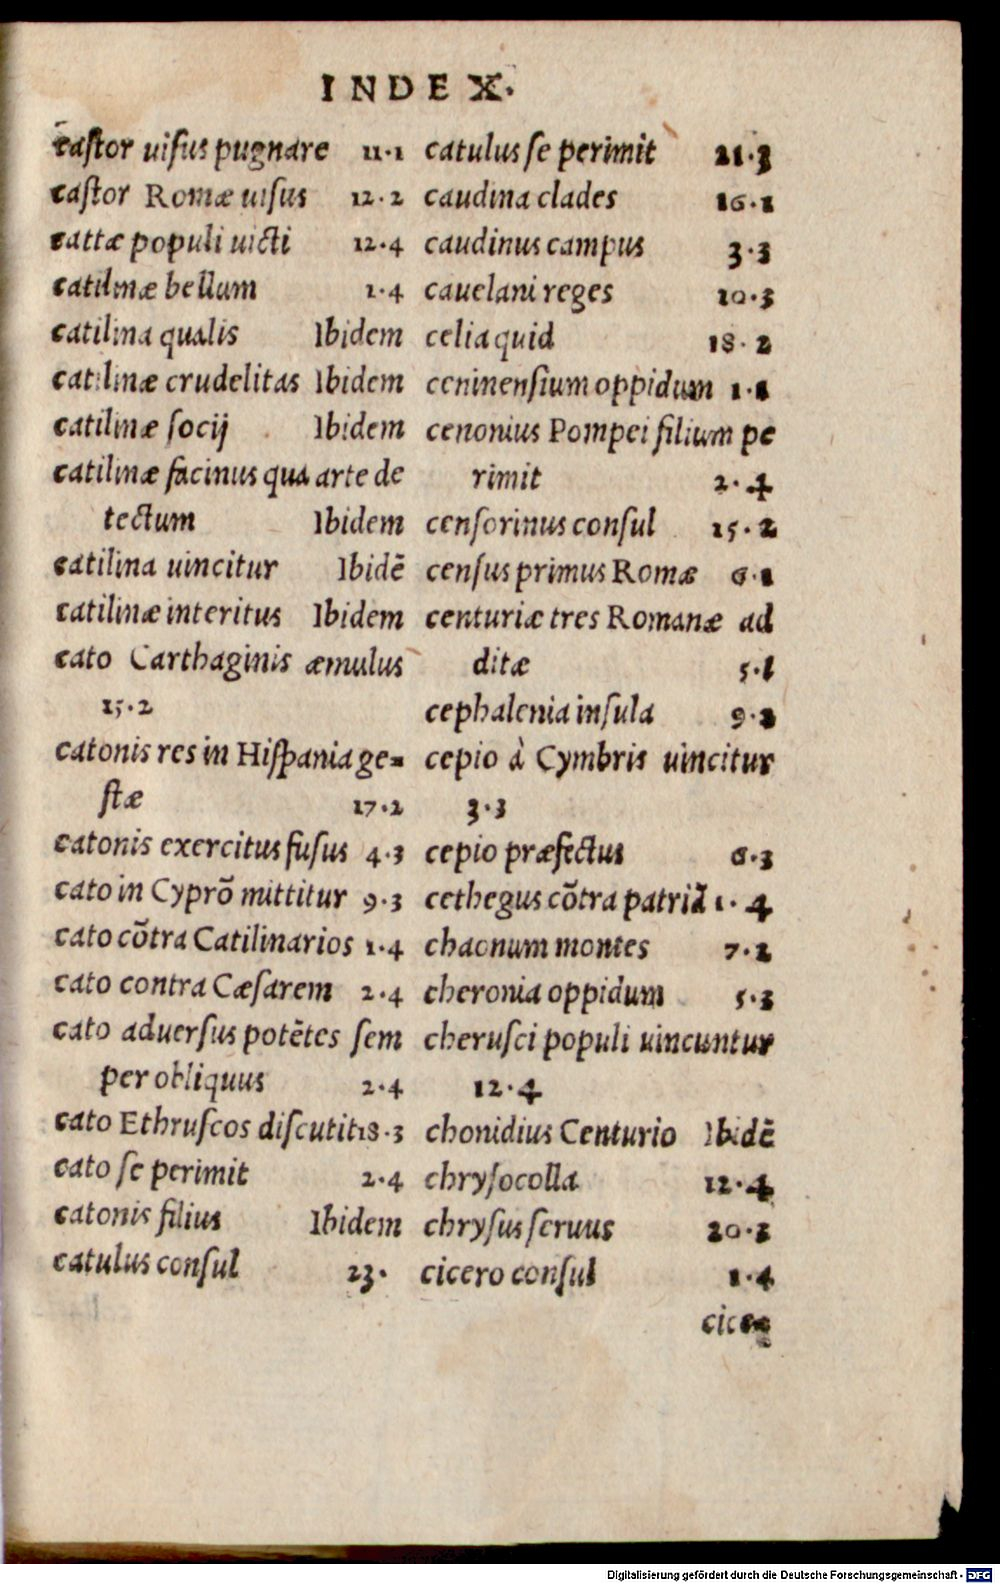 INDEX.
castor uisus pugnare 11.1
castor Romæ uisus 12.2
cattæ populi uicti 12.4
catilinæ bellum 1.4
catilina qualis Ibidem
catilinæ crudelitas Ibidem
catilinæ socij Ibidem
catilinæ facinus qua arte de
tectum Ibidem
catilina uincitur Ibidē
catilinæ interitus Ibidem
cato Carthaginis æmulus
15.2
catonis res in Hispania ge=
stæ 17.2
catonis exercitus fusus 4.3
cato in Cyprō mittitur 9.3
cato cōtra Catilinarios 1.4
cato contra Cæsarem 2.4
cato aduersus potētes sem
per obliquus 2.4
cato Ethruscos discutit 18.3
cato se perimit 2.4
catonis filius Ibidem
catulus consul 23.
catulus se perimit 21.3
caudina clades 16.1
caudinus campus 3.3
cauelani reges 10.3
celia quid 18.2
ceninensium oppidum 1.1
cenonius Pompei filium pe
rimit 2.4
censorinus consul 15.2
census primus Romæ 6.1
centuriæ tres Romanæ ad
ditæ 5.1
cephalenia insula 9.2
cepio à Cymbris uincitur
3.3
cepio præfectus 6.3
cethegus cōtra patriā 1.4
chaonum montes 7.2
cheronia oppidum 5.3
cherusci populi uincuntur
12.4
chonidius Centurio Ibidē
chrysocolla 12.4
chrysus seruus 20.3
cicero consul 1.4
cicer=
Digitalisierung gefördert durch die Deutsche Forschungsgemeinschaft - DFG